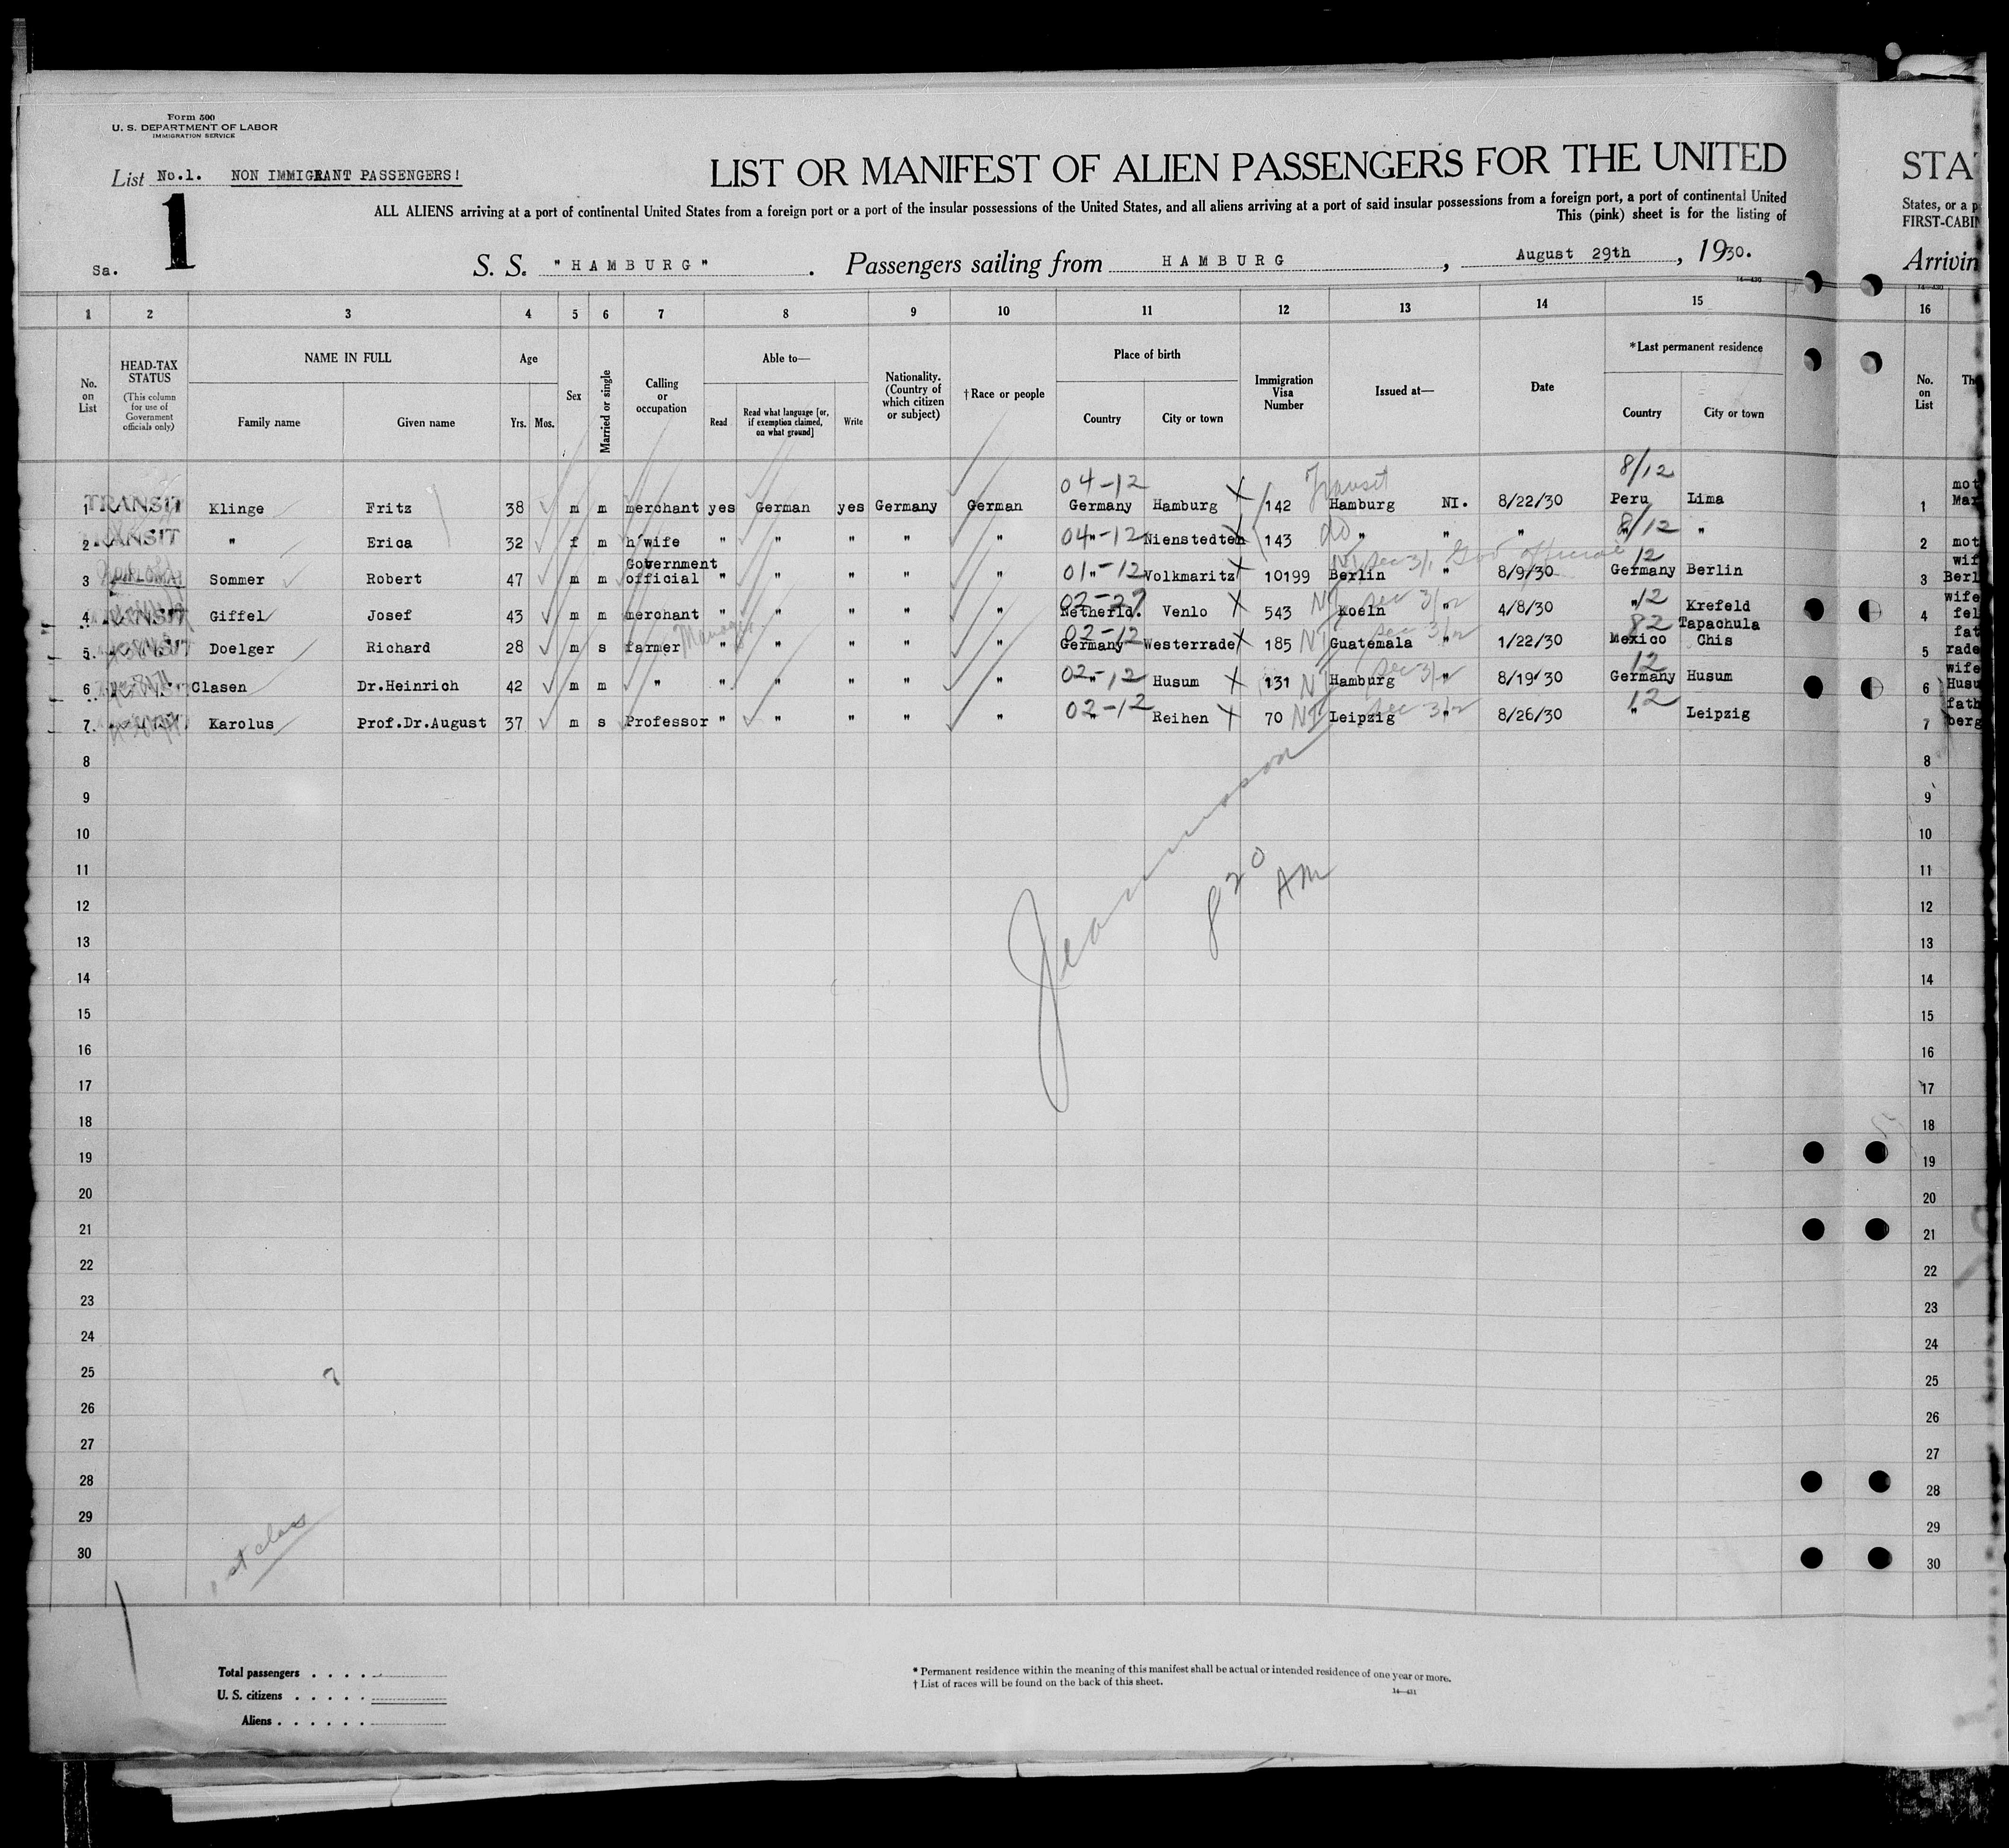 Form 500
U. S. DEPARTMENT OF LABOR
IMMIGRATION SERVICE
List No.1. NON IMMIGRANT PASSENGERS!
1
Sa.
LIST OR MANIFEST OF ALIEN PASSENGERS FOR THE UNITED
STA
ALL ALIENS arriving at a port of continental United States from a foreign port or a port of the insular possessions of the United States, and all aliens arriving at a port of said insular possessions from a foreign port, a port of continental United
States, or a p
This (pink) sheet is for the listing of
FIRST-CABI
S. S. "HAMBURG". Passengers sailing from HAMBURG, August 29th, 1930.
Arrivin
14—430
14—430
1 2 3 4 5 6 7 8 9 10 11 12 13 14 15 16
No. on List
HEAD-TAX STATUS
(This column for use of Government officials only)
NAME IN FULL
Family name Given name
Age
Yrs. Mos.
Sex
Married or single
Calling or occupation
Able to—
Read
Read what language [or, if exemption claimed, on what ground]
Write
Nationality. (Country of which citizen or subject)
†Race or people
Place of birth
Country City or town
Immigration Visa Number
Issued at—
Date
*Last permanent residence
Country City or town
No. on List
Th
04-12 Transit 8/12 mot
1 TRANSIT Klinge Fritz 38 m m merchant yes German yes Germany German Germany Hamburg 142 Hamburg NI. 8/22/30 Peru Lima 1 Mar
2 TRANSIT " Erica 32 f m h'wife " " " " " 04-12 " Nienstedten 143 do " " " 8/12 " " 2 mot
Government NI Sec 3/1 Gov official 12 wif
3 DIPLOMAT Sommer Robert 47 m m official " " " " " 01-12 " Volkmaritz 10199 Berlin " 8/9/30 Germany Berlin 3 Berl
02-27 wife
4 TRANSIT Giffel Josef 43 m m merchant " " " " " Netherld. Venlo 543 NI Koeln Sec 3/2 " 4/8/30 " 12 Krefeld 4 fel
Manager 02-12 82 Tapachula fat
5 TRANSIT Doelger Richard 28 m s farmer " " " " " Germany Westerrade 185 NI Guatemala Sec 3/2 " 1/22/30 Mexico Chis 5 rade
12 wife
6 Clasen Dr.Heinrich 42 m m " " " " " " 02-12 " Husum 131 NI Hamburg Sec 3/2 " 8/19/30 Germany Husum 6 Husu
12 fath
7 Karolus Prof.Dr.August 37 m s Professor " " " " " 02-12 " Reihen 70 NI Leipzig Sec 3/2 " 8/26/30 " Leipzig 7 berg
8 8
9 9
10 10
11 820 AM 11
12 12
13 13
14 14
15 15
16 16
17 17
18 18
19 19
20 20
21 21
22 22
23 23
24 24
25 7 25
26 26
27 27
28 28
29 29
30 1st class 30
Total passengers . . . .
U. S. citizens . . . . .
Aliens . . . . . .
* Permanent residence within the meaning of this manifest shall be actual or intended residence of one year or more.
† List of races will be found on the back of this sheet.
14—431